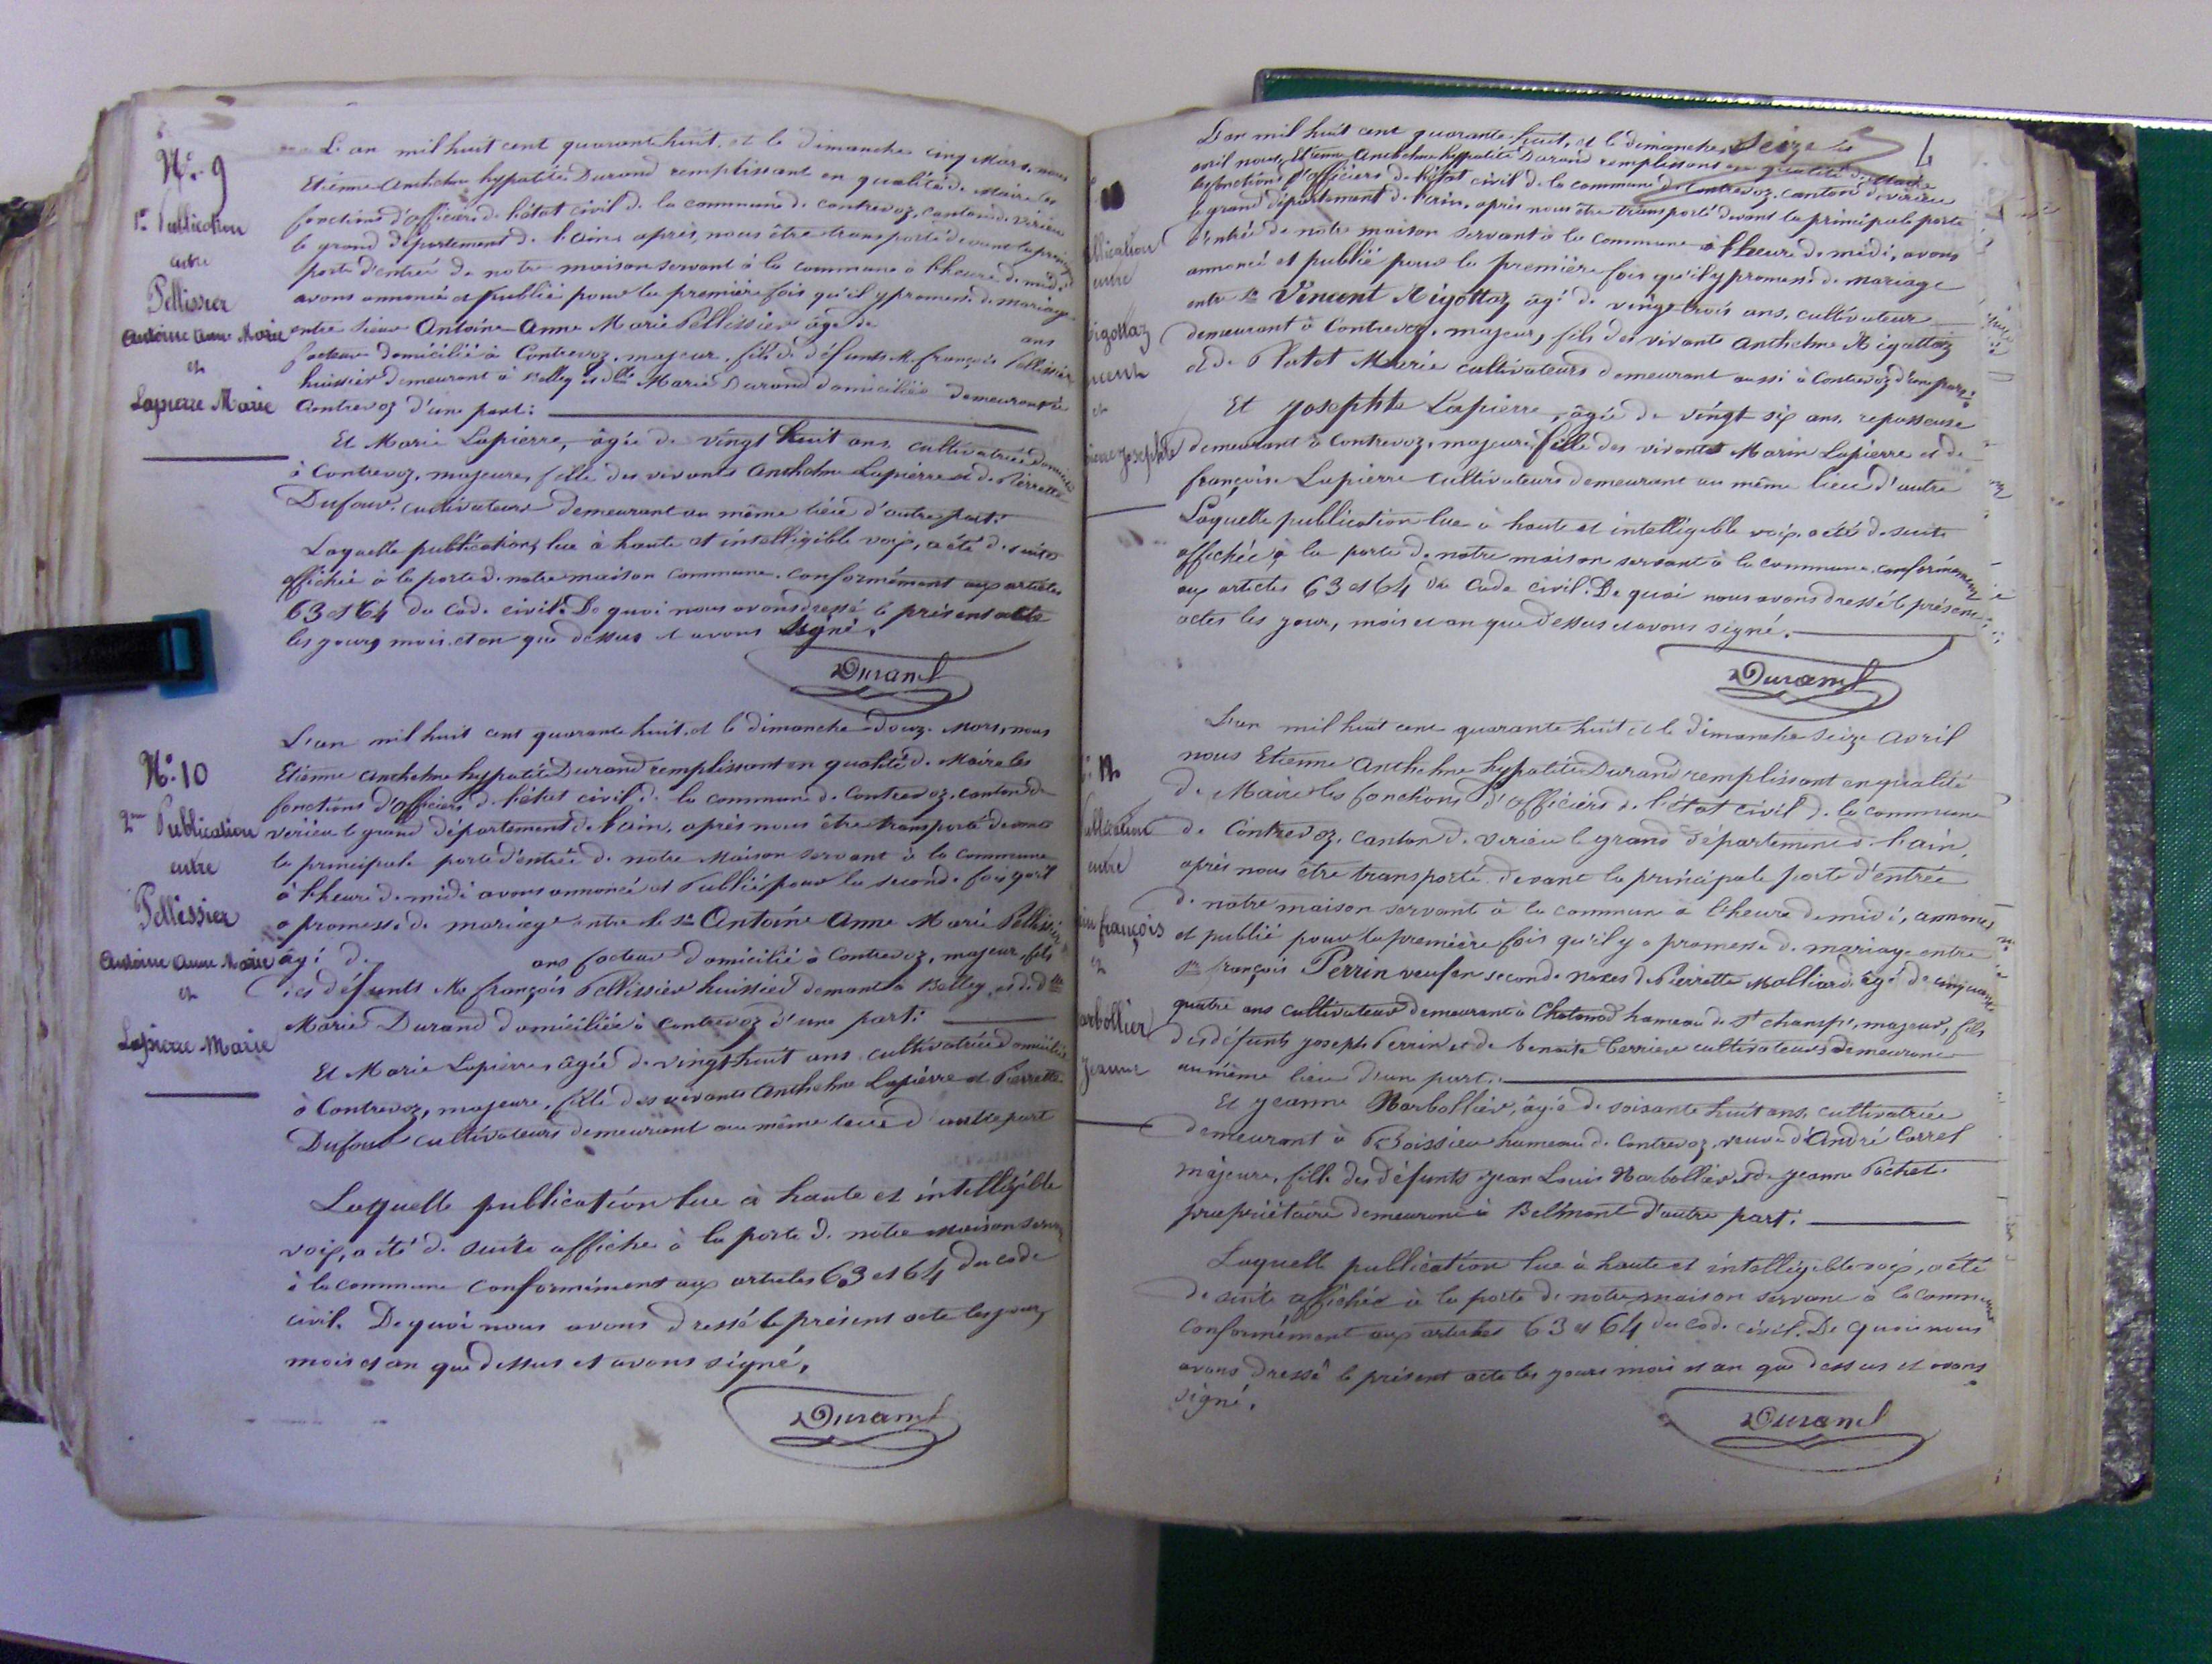 N.° 9
1re Publication
entre
Pellissier
Antoine Anne Marie
et
Lapierre Marie
L'an mil huit cent quarante huit, et le dimanche cinq Mars, nous
Etienne Anthelme hypolite Durand remplissant en qualité de Maire les
fonctions d'officiers de l'état civil de la commune de contrevoz, canton de virieu
le grand département de l'ain, après nous être transporté devant la principale
porte d'entrée de notre maison servant à la commune à l'heure de midi
avons annoncé et publié pour la première fois qu'il y promesse de mariage
entre sieur Antoine Anne Marie Pellissier âgé de ans
facteur domicilié à Contrevoz, majeur, fils de défunts M. françois Pellissier
huissier demeurant à Belley et dlle Marie Durand domiciliée demeurant à
Contrevoz d'une part:
Et Marie Lapierre, âgée de vingt huit ans, cultivatrice domiciliée
à Contrevoz, majeure, fille des vivants Anthelme Lapierre et de Pierrette
Dufour, cultivateurs demeurant au même lieu d'autre part.
Laquelle publication, lue à haute et intelligible voix, a été de suite
affichée à la porte de notre maison commune, conformément aux articles
63 et 64 du Code civil. De quoi nous avons dressé le présent acte
les jours, mois et an que dessus et avons signé.
Durand
N.° 10
2me Publication
entre
Pellissier
Antoine Anne Marie
et
Lapierre Marie
L'an mil huit cent quarante huit, et le dimanche douze Mars, nous
Etienne Anthelme hypolite Durand remplissant en qualité de Maire les
fonctions d'officiers de l'état civil de la commune de Contrevoz, canton de
virieu le grand département de l'ain, après nous être transporté devant
la principale porte d'entrée de notre Maison servant à la commune
à l'heure de midi avons annoncé et Publié pour la seconde fois qu'il
a promesse de mariage entre le sr Antoine Anne Marie Pellissier
âgé de ans facteur domicilié à Contrevoz, majeur, fils
des défunts Me françois Pellissier huissier demant à Belley, et de dlle
Marie Durand domiciliée à contrevoz d'une part:
Et Marie Lapierre, âgée de vingt huit ans, cultivatrice domiciliée
à Contrevoz, majeure, fille des vivants Anthelme Lapierre et Pierrette
Dufour cultivateurs demeurant au même lieu d'autre part
Laquelle publication lue à haute et intelligible
voix, a été de suite affiche à la porte de notre maison servant
à la commune conformément aux articles 63 et 64 du code
civil. De quoi nous avons dressé le présent acte les jours,
mois et an que dessus et avons signé,
Durand
4
blication
entre
Rigottaz
incent
et
pierre Josephte
L'an mil huit cent quarante huit, et le dimanche, Seize
avril nous, Etienne Anthelme hypolite Durand remplissons en qualité de Maire
les fonctions d'officiers de l'état civil de la commune de Contrevoz, canton de virieu
le grand département de l'ain, après nous être transporté devant la principale porte
d'entrée de notre maison servant à la commune à l'heure de midi, avons
annoncé et publié pour la première fois qu'il y promesse de mariage
entre sr Vincent Rigottaz âgé de vingt trois ans, cultivateur
demeurant à Contrevoz, majeur, fils des vivants Anthelme Rigottaz
et de Platet Marie cultivateurs demeurant aussi à Contrevoz d'une part:
Et Josephte Lapierre, âgée de vingt six ans, repasseuse
demeurant à Contrevoz, majeure, fille des vivants Marin Lapierre et de
françoise Lapierre cultivateurs demeurant au même lieu d'autre
Laquelle publication lue à haute et intelligible voix, a été de suite
affichée à la porte de notre maison servant à la commune, conformément
aux articles 63 et 64 du Code civil. De quoi nous avons dressé le présent
actes les jour, mois et an que dessus et avons signé.
Durand
ublication
entre
françois
et
arbollier
Jeanne
L'an mil huit cent quarante huit et le dimanche seize avril
nous Etienne Anthelme hypolite Durand remplissant en qualité
de Maire les fonctions d'officiers de l'état civil de la commune
de Contrevoz, canton de virieu le grand département de l'ain,
après nous être transporté devant la principale porte d'entrée
de notre maison servant à la commune à l'heure de midi, annoncé
et publié pour la première fois qu'il y a promesse de mariage entre
sr françois Perrin veuf en seconde noces de Pierrette Molliard âgé de cinquante
quatre ans cultivateur demeurant à Chatonod hameau de St champt, majeur, fils
des défunts joseph Perrin et de benoite Berrier cultivateurs demeurant
au même lieu d'une part:
Et Jeanne Narbollier, âgée de soixante huit ans, cultivatrice
demeurant à Boissieu hameau de Contrevoz, veuve d'André Carrel
majeure, fille des défunts jean Louis Narbollier et de jeanne Pochet
propriétaire demeurant à Belmont d'autre part.
Laquelle publication lue à haute et intelligible voix, a été
de suite affichée à la porte de notre maison servant à la commune
conformément aux articles 63 et 64 du code civil. De quoi nous
avons dressé le présent acte les jours mois et an que dessus et avons
signé.
Durand